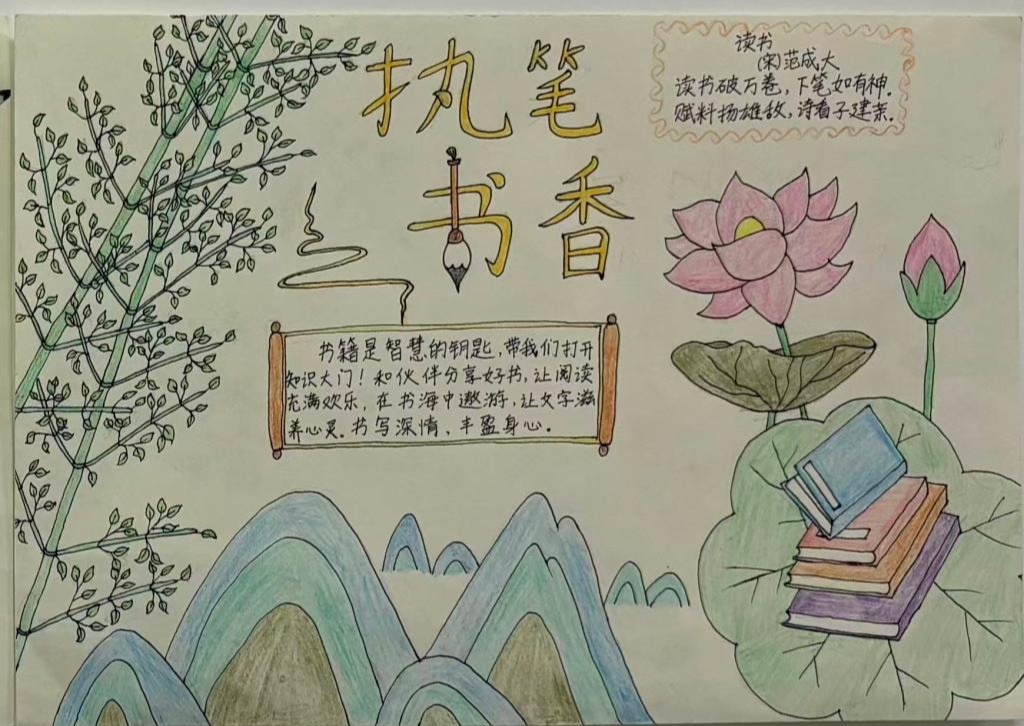 执笔
书香
读书
(宋)范成大
读书破万卷，下笔如有神.
赋料扬雄敌，诗看子建亲.
书籍是智慧的钥匙，带我们打开
知识大门！和伙伴分享好书，让阅读
充满欢乐，在书海中遨游，让文字滋
养心灵。书写深情，丰盈身心。